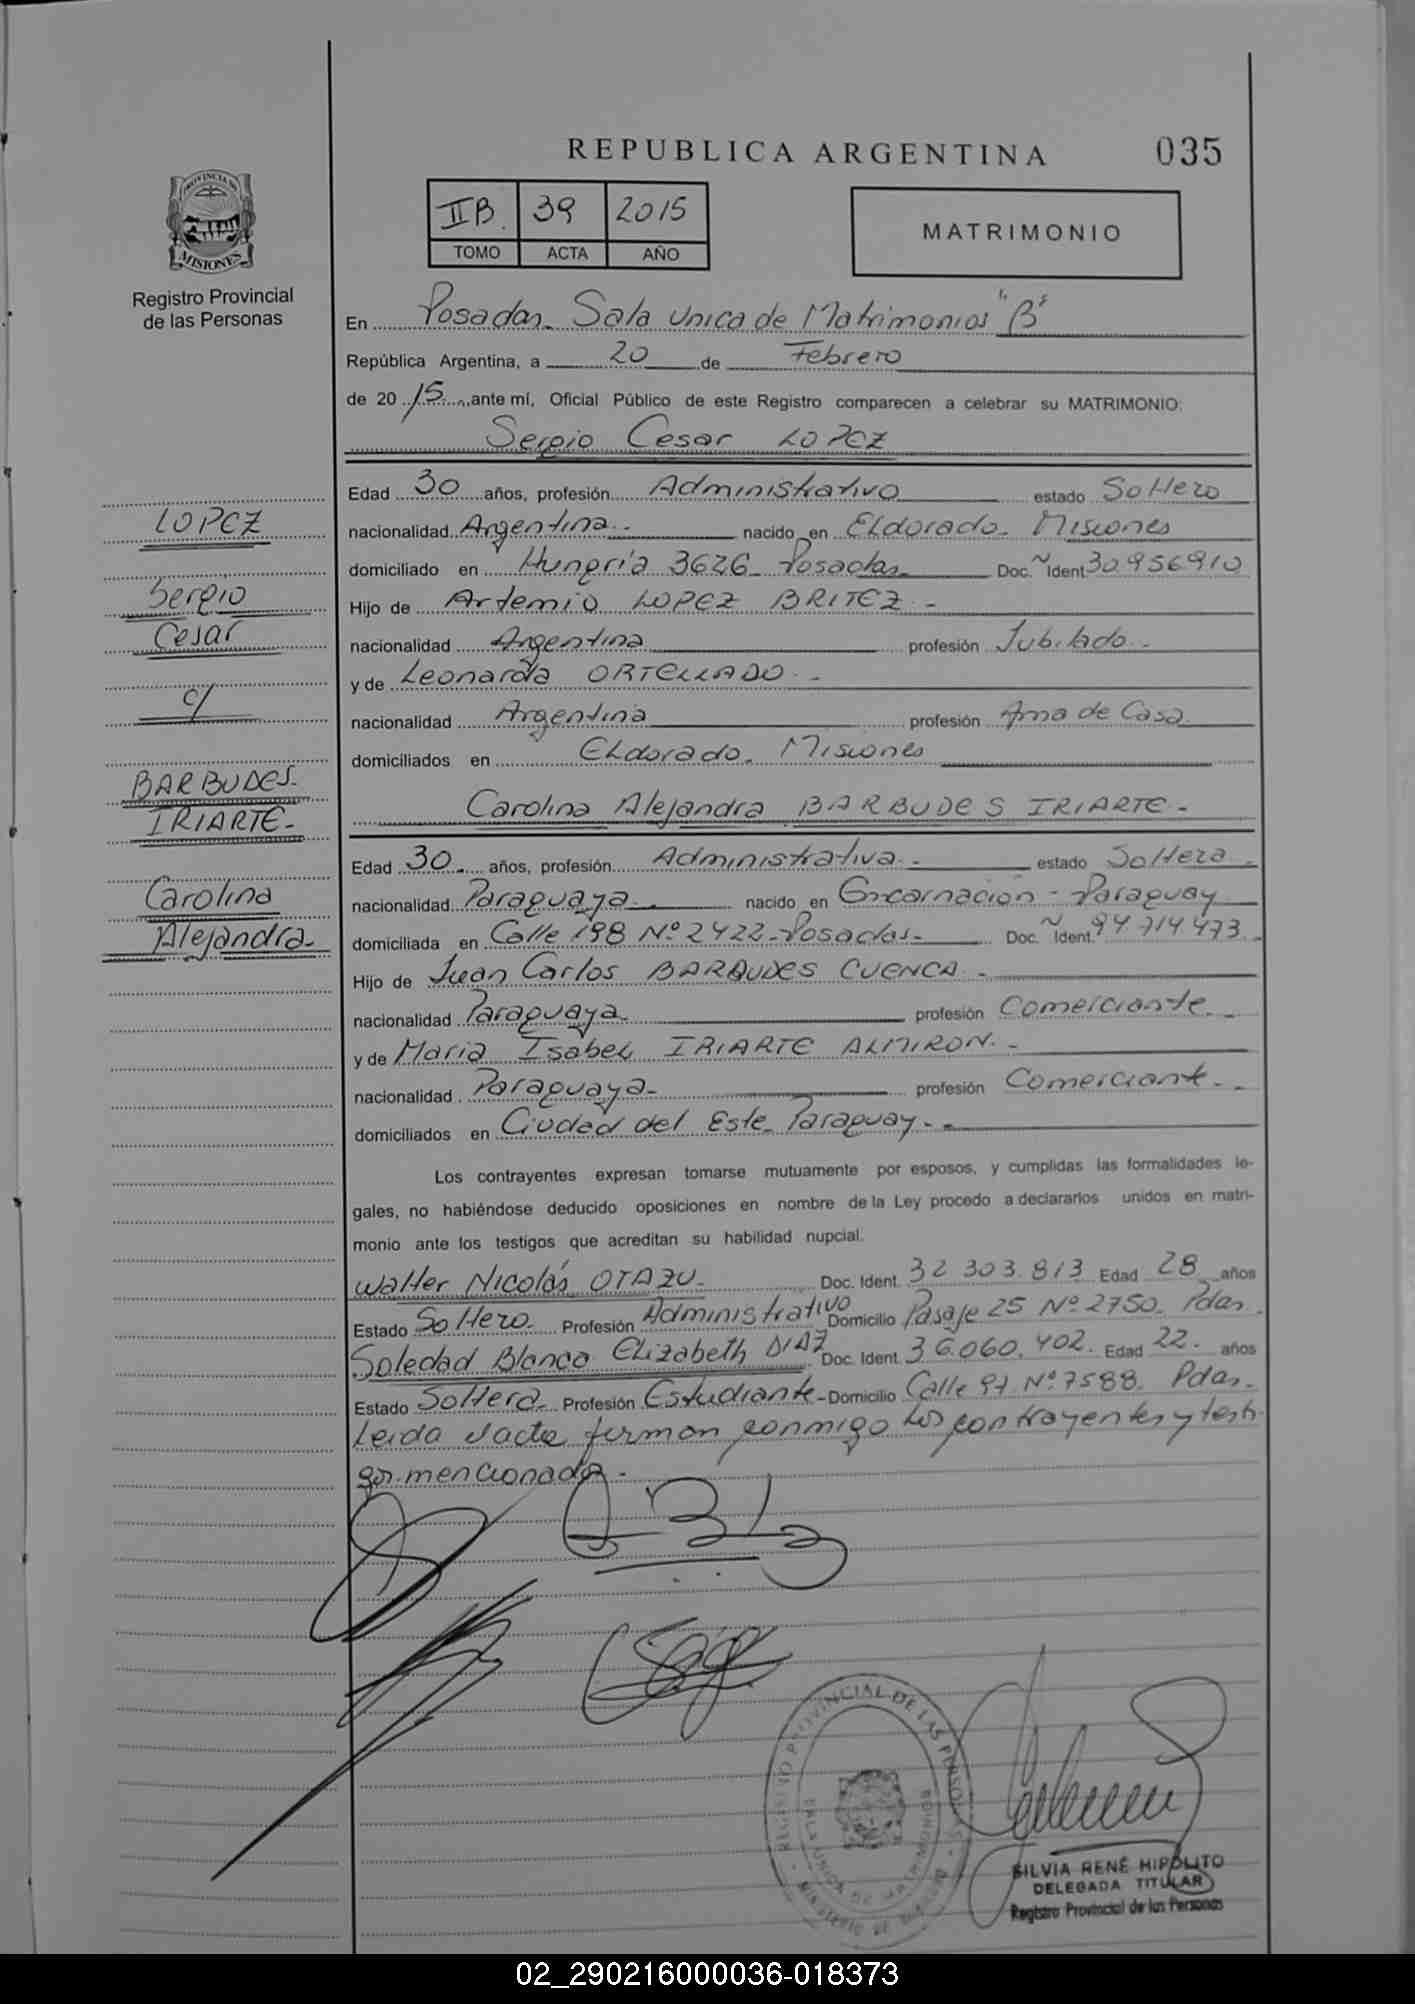 REPUBLICA ARGENTINA
035
PROVINCIA DE
MISIONES
Registro Provincial
de las Personas
IIB. 39 2015
TOMO ACTA AÑO
MATRIMONIO
En Posadas. Sala Unica de Matrimonios "B"
República Argentina, a 20 de Febrero
de 2015, ante mí, Oficial Público de este Registro comparecen a celebrar su MATRIMONIO:
Sergio Cesar LOPEZ
Edad 30 años, profesión Administrativo estado Soltero
nacionalidad Argentina nacido en ELdorado. Misiones
domiciliado en Hungría 3626 Posadas Doc. Ident 30956910
Hijo de Artemio LOPEZ BRITEZ -
nacionalidad Argentina profesión Jubilado.
y de Leonarda ORTELLADO -
nacionalidad Argentina profesión Ama de Casa
domiciliados en ELdorado. Misiones
Carolina Alejandra BARBUDES IRIARTE -
Edad 30 años, profesión Administrativa estado Soltera
nacionalidad Paraguaya nacido en Encarnación - Paraguay
domiciliada en Calle 198 Nº 2422-Posadas- Doc. Ident. 94 714 473
Hijo de Juan Carlos BARBUDES CUENCA -
nacionalidad Paraguaya profesión Comerciante
y de Maria Isabel IRIARTE ALMIRON. -
nacionalidad Paraguaya profesión Comerciante
domiciliados en Ciudad del Este Paraguay.
Los contrayentes expresan tomarse mutuamente por esposos, y cumplidas las formalidades le-
gales, no habiéndose deducido oposiciones en nombre de la Ley procedo a declararlos unidos en matri-
monio ante los testigos que acreditan su habilidad nupcial.
Walter Nicolás OTAZU Doc. Ident. 32 303.813 Edad 28 años
Estado Soltero. Profesión Administrativo Domicilio Pasaje 25 Nº 2750. Pdas.
Soledad Blanca Elizabeth DIAZ Doc. Ident. 36.060.402. Edad 22. años
Estado Soltera Profesión Estudiante Domicilio Calle 97 Nº 7588. Pdas.
Leida el acta firman conmigo los contrayentes y testi-
gos mencionados.
LOPEZ
Sergio
Cesar
c/
BARBUDES
IRIARTE
Carolina
Alejandra
REGISTRO PROVINCIAL DE LAS PERSONAS
SALA UNICA DE MATRIMONIOS
MINISTERIO DE
SILVIA RENÉ HIPÓLITO
DELEGADA TITULAR
Registro Provincial de las Personas
02_290216000036-018373